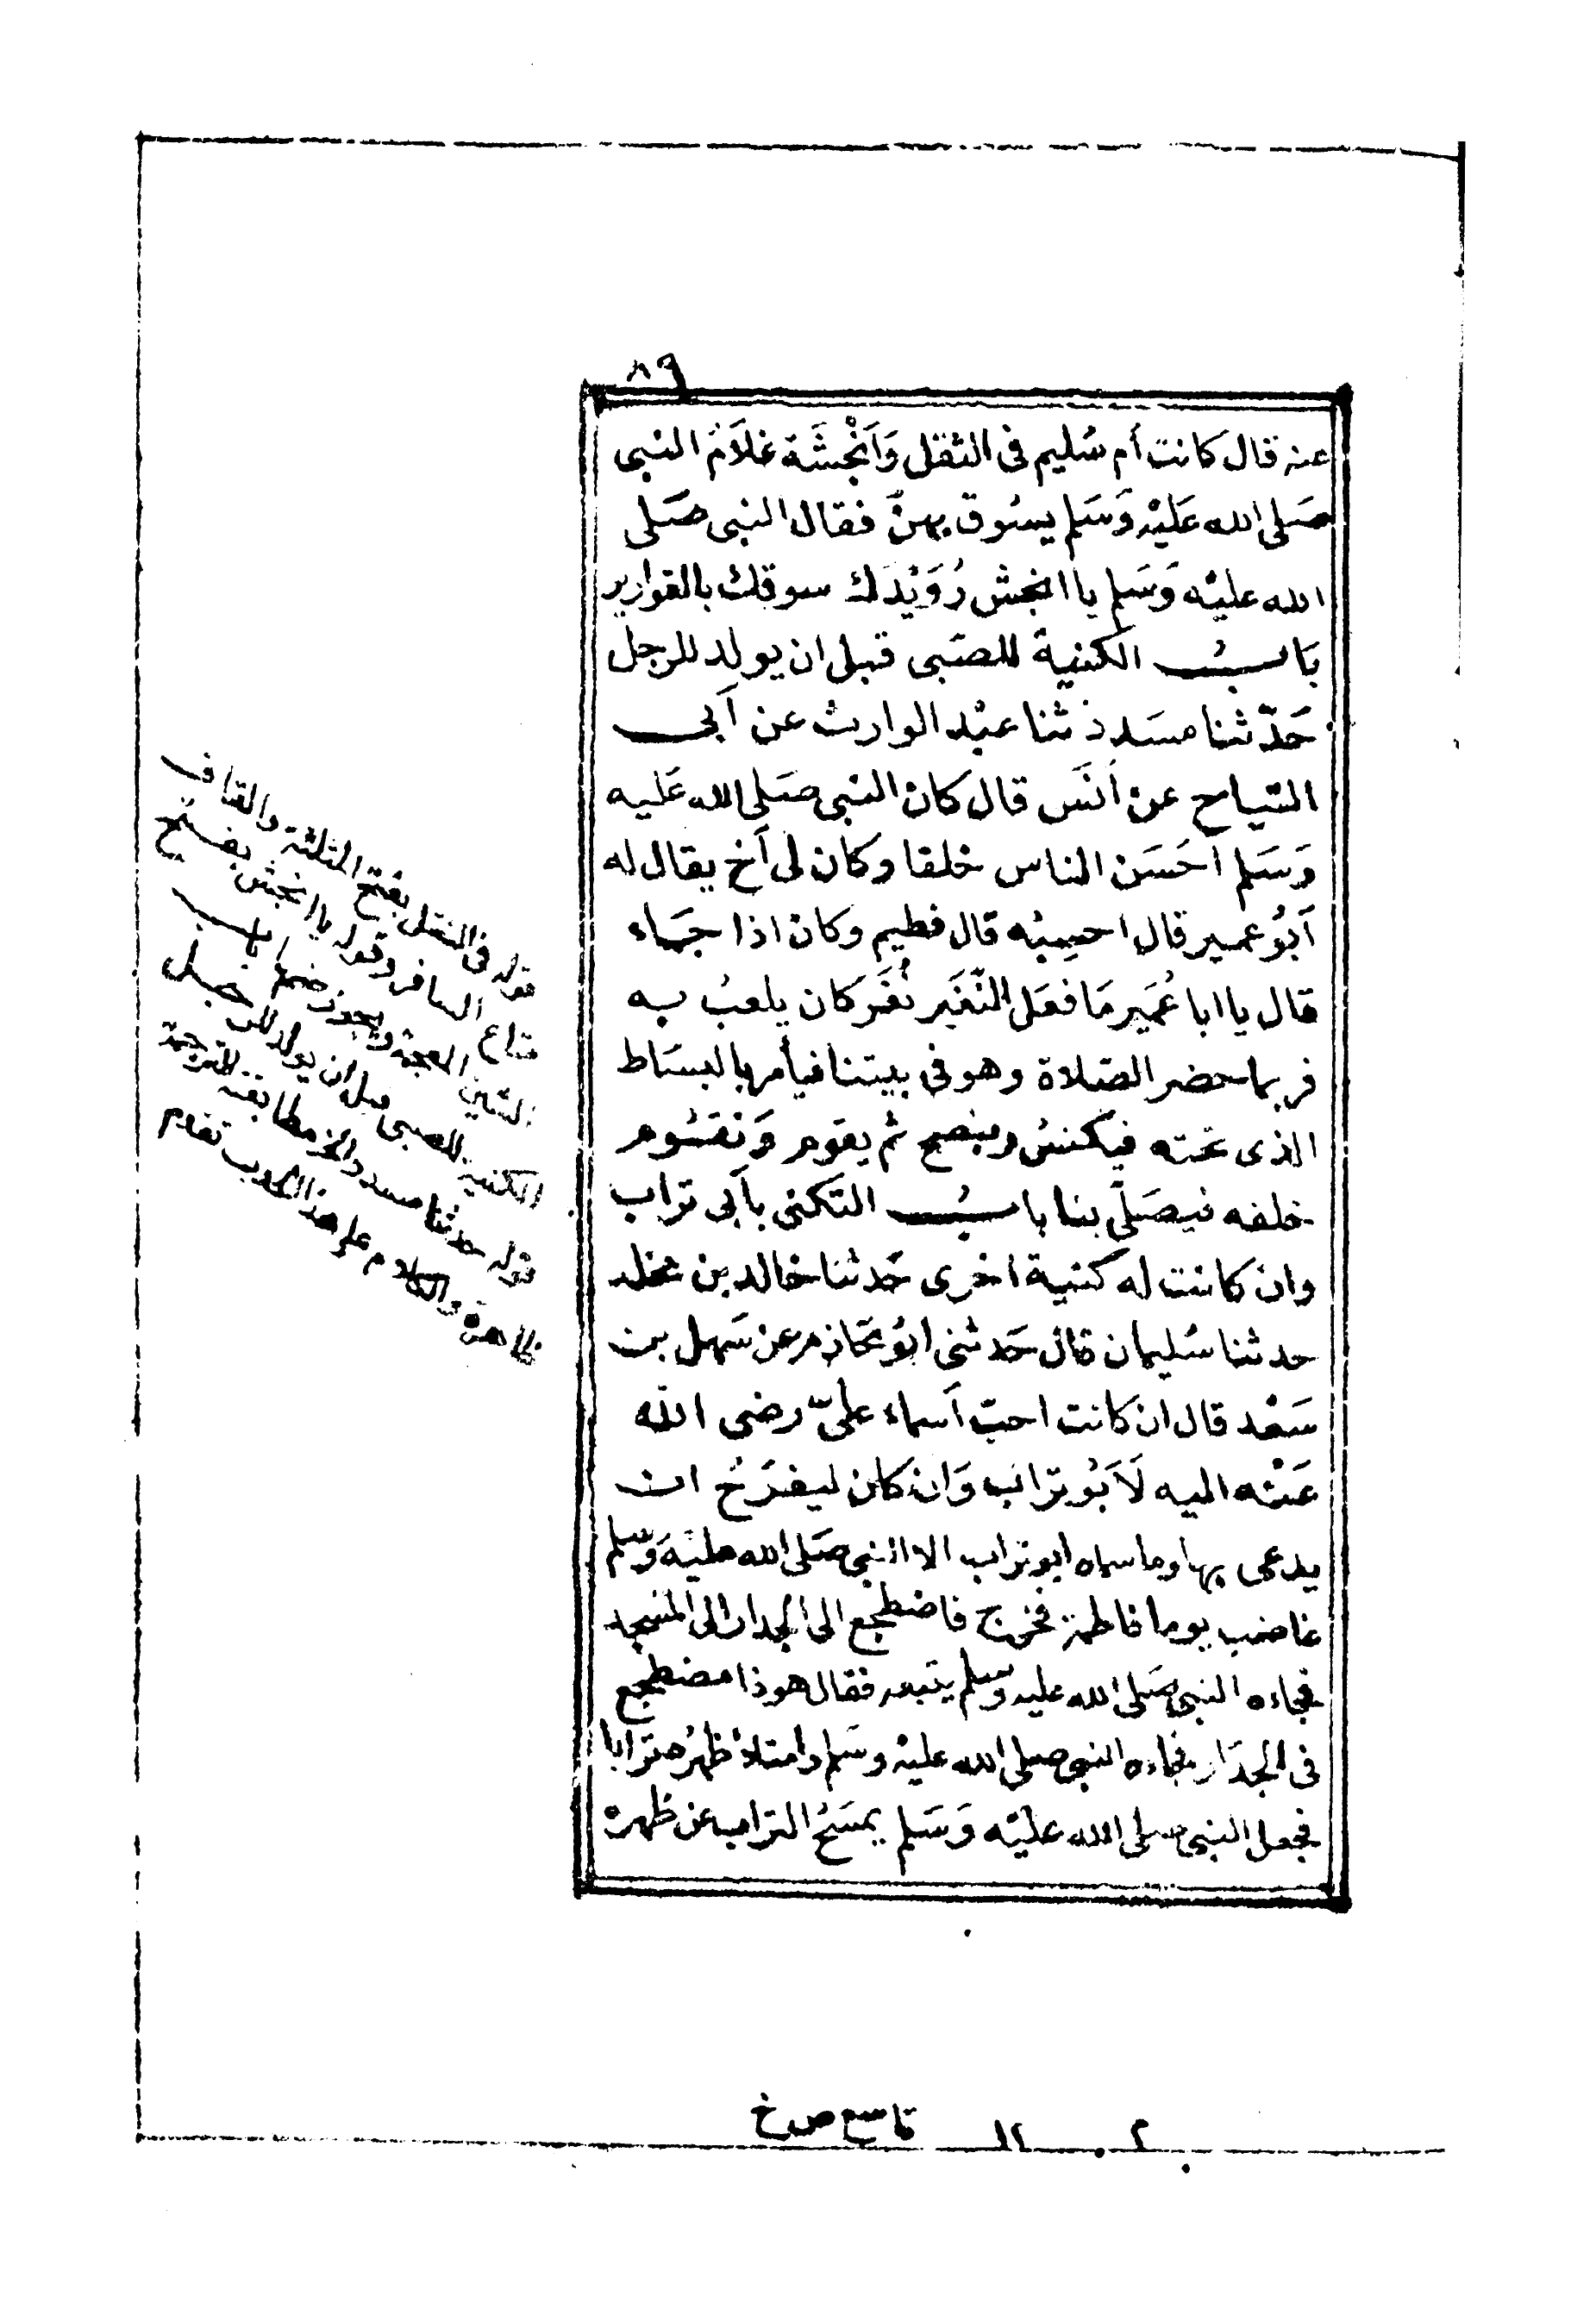 ٨٩
عنه قال كانت أم سُليم فى الثقل وَأَنْجشَة غلَامُ النبى
صَلى الله عَليْه وَسَلم يسُوق بهنَّ فقال النبى صَلى
الله عليْه وَسَلم يا انجش رُوَيْدَك سوقك بالقوارير
بَابُ الكنية للصَبى قبل ان يولد للرجل
حَدّثنا مسَدد ثنا عبْد الوارث عن أبى
التياح عن أنَس قال كان النبى صَلى الله عَليه
وَسَلم أحَسَن الناس خلقا وكان لى أخ يقال له
أبُو عمير قال احسِبُه قال فطيم وكان اذا جَاء
قال يا ابا عُمَير مَا فعَل النّغَير نُغَر كان يلعبُ به
فربما حضر الصَلاة وهو فى بيتنا فيأمر بالبسَاط
الذى تحته فيكنسُ وينضح ثم يقوم وَنقُوم
خلفه فيصَلّى بنا بابُ التكنى بأبى تراب
وان كانت له كنية اخرى حَدثنا خالد بن مخلد
حدثنا سُليمان قال حَدثنى ابُو حَازم عن سَهل بن
سَعْد قال ان كانت احبّ أسماء علىّ رضى الله
عَنْه اليه لَأبُو تراب وَان كان ليفرَحُ ان
يدعى بها وما سماه ابو تراب الا النبى صَلى الله عليْه وَسّلم
غاضب يوما فاطمة فخرج فاضطجع الى الجدار الى المسجد
فجاءه النبى صَلى الله عليه وسلم يتبعه فقال هو ذا مضطجع
فى الجدَار فجاءه النبى صلى الله عليْه وسَلم وامتلأ ظهرُه ترابا
فجعل النبى صلى الله عليْه وَسَلم يمسَحُ التراب عن ظهره
قوله فى الثقل بفتح المثلثة والقاف
متاع المسافر وقوله يا انجش بفتح
الشين المعجمة ويجوز ضمها باب
الكنية للصبى قبل ان يولد للرجل
قوله حدثنا مسدد الخ مطابقته للترجمة
ظاهرة والكلام على هذا الحديث تقدم
تاسع ص خ